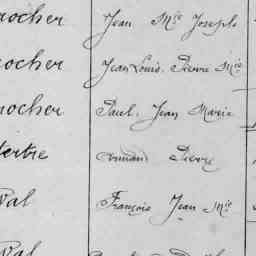 rocher Jean Mie Joseph
rocher Jean Louis Pierre Mie
rocher Paul Jean Marie
ertre Armand Pierre
Val François Jean Mie
Val